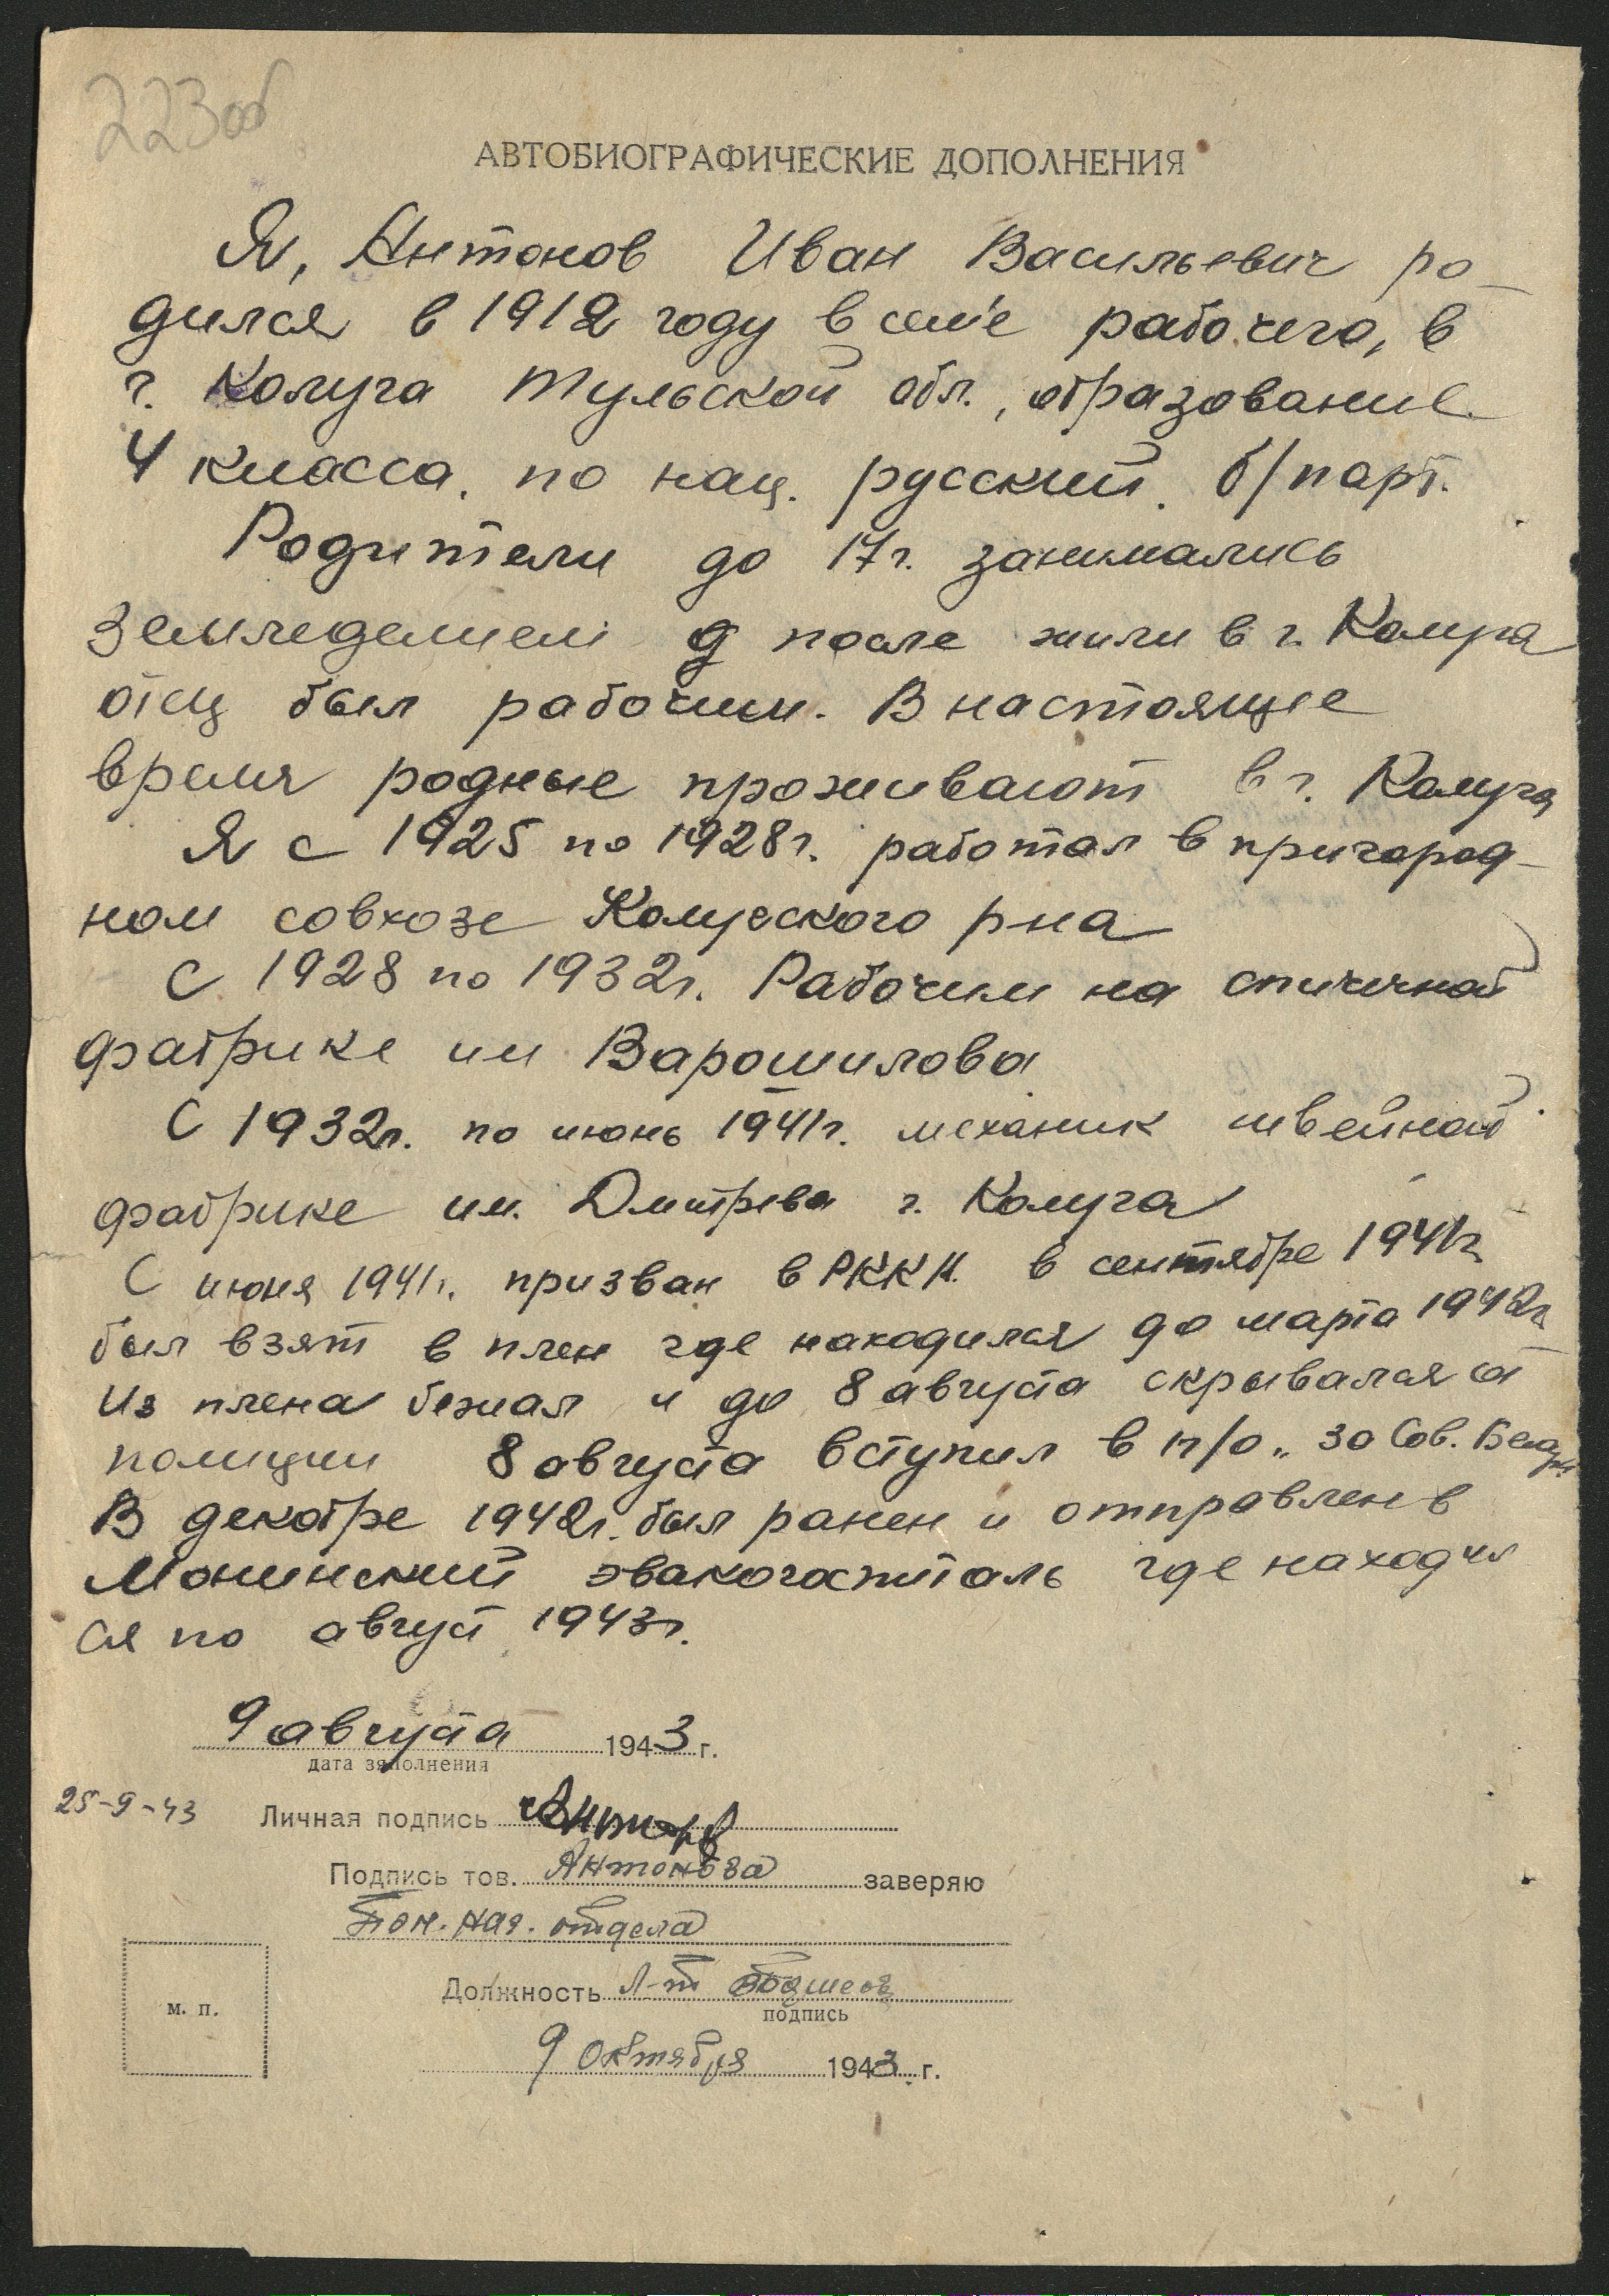 223об
АВТОБИОГРАФИЧЕСКИЕ ДОПОЛНЕНИЯ
Я, Антонов Иван Васильевич ро-
дился в 1912 году в сем'е рабочего, в
г. Калуга Тульской обл., образование
4 класса. по нац. русский. б/парт.
Родители до 17г. занимались
земледелием а после жили в г. Калуга
отец был рабочим. В настоящее
время родные проживают в г. Калуга
Я с 1925 по 1928г. работал в пригород-
ном совхозе Калужского рна
С 1928 по 1932г. Рабочим на спичечной
фабрике им Варошилова
С 1932г. по июнь 1941г. механик швейной
фабрике им. Дмитрева г. Калуга
С июня 1941г. призван в РККА. в сентябре 1941г
был взят в плен где находился до марта 1942г
Из плена бежал и до 8 августа скрывался от
полиции 8 августа вступил в п/о „За Сов. Белор.
В декабре 1942г. был ранен и отправлен в
Монинский эвакогоспиталь где находил
ся по август 1943г.
9 августа 1943 г.
дата заполнения
25-9-43 Личная подпись Антонов
Подпись тов. Антонова заверяю
Пом. нач. отдела
Должность л-т
подпись
м. п.
9 октября 1943 г.